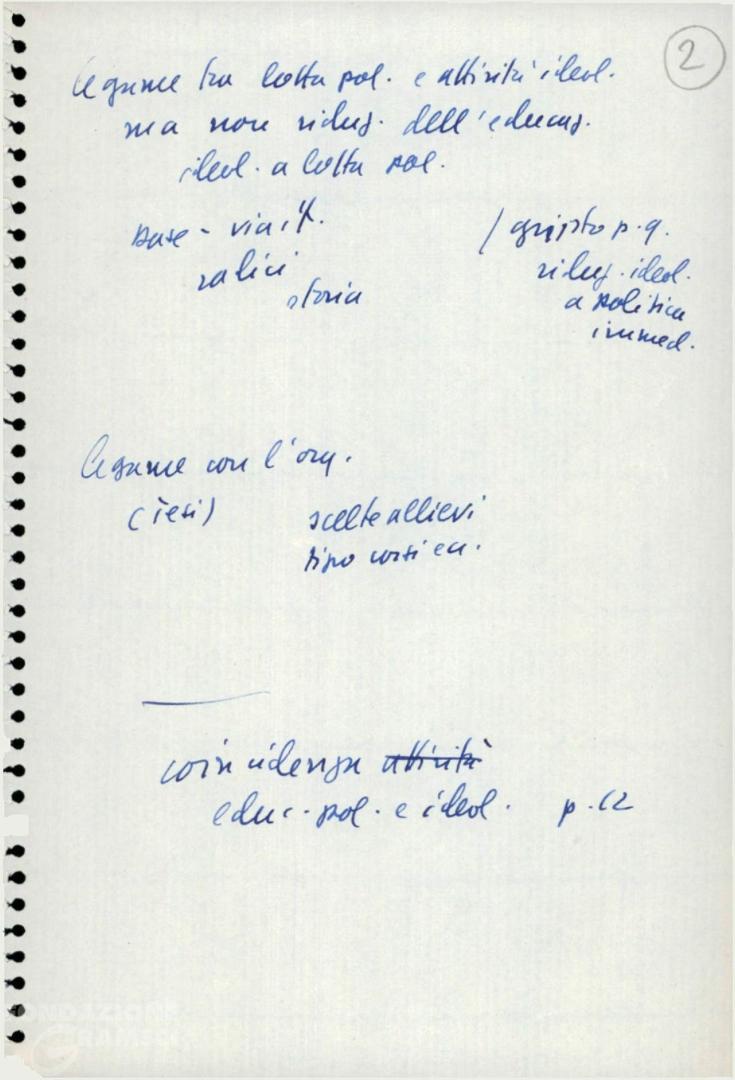 2
legame tra lotta pol. e attività ideol.
ma non riduz. dell'educaz.
ideol. a lotta pol.
base - via it.
radici
storia
/ p. 9.
riduz. ideol.
a politica
immed.
legame con l'org.
(tesi)
scelte allievi
tipo corsi ecc.
coincidenza attività
educ. pol. e ideol. p. 12
FONDAZIONE
GRAMSCI